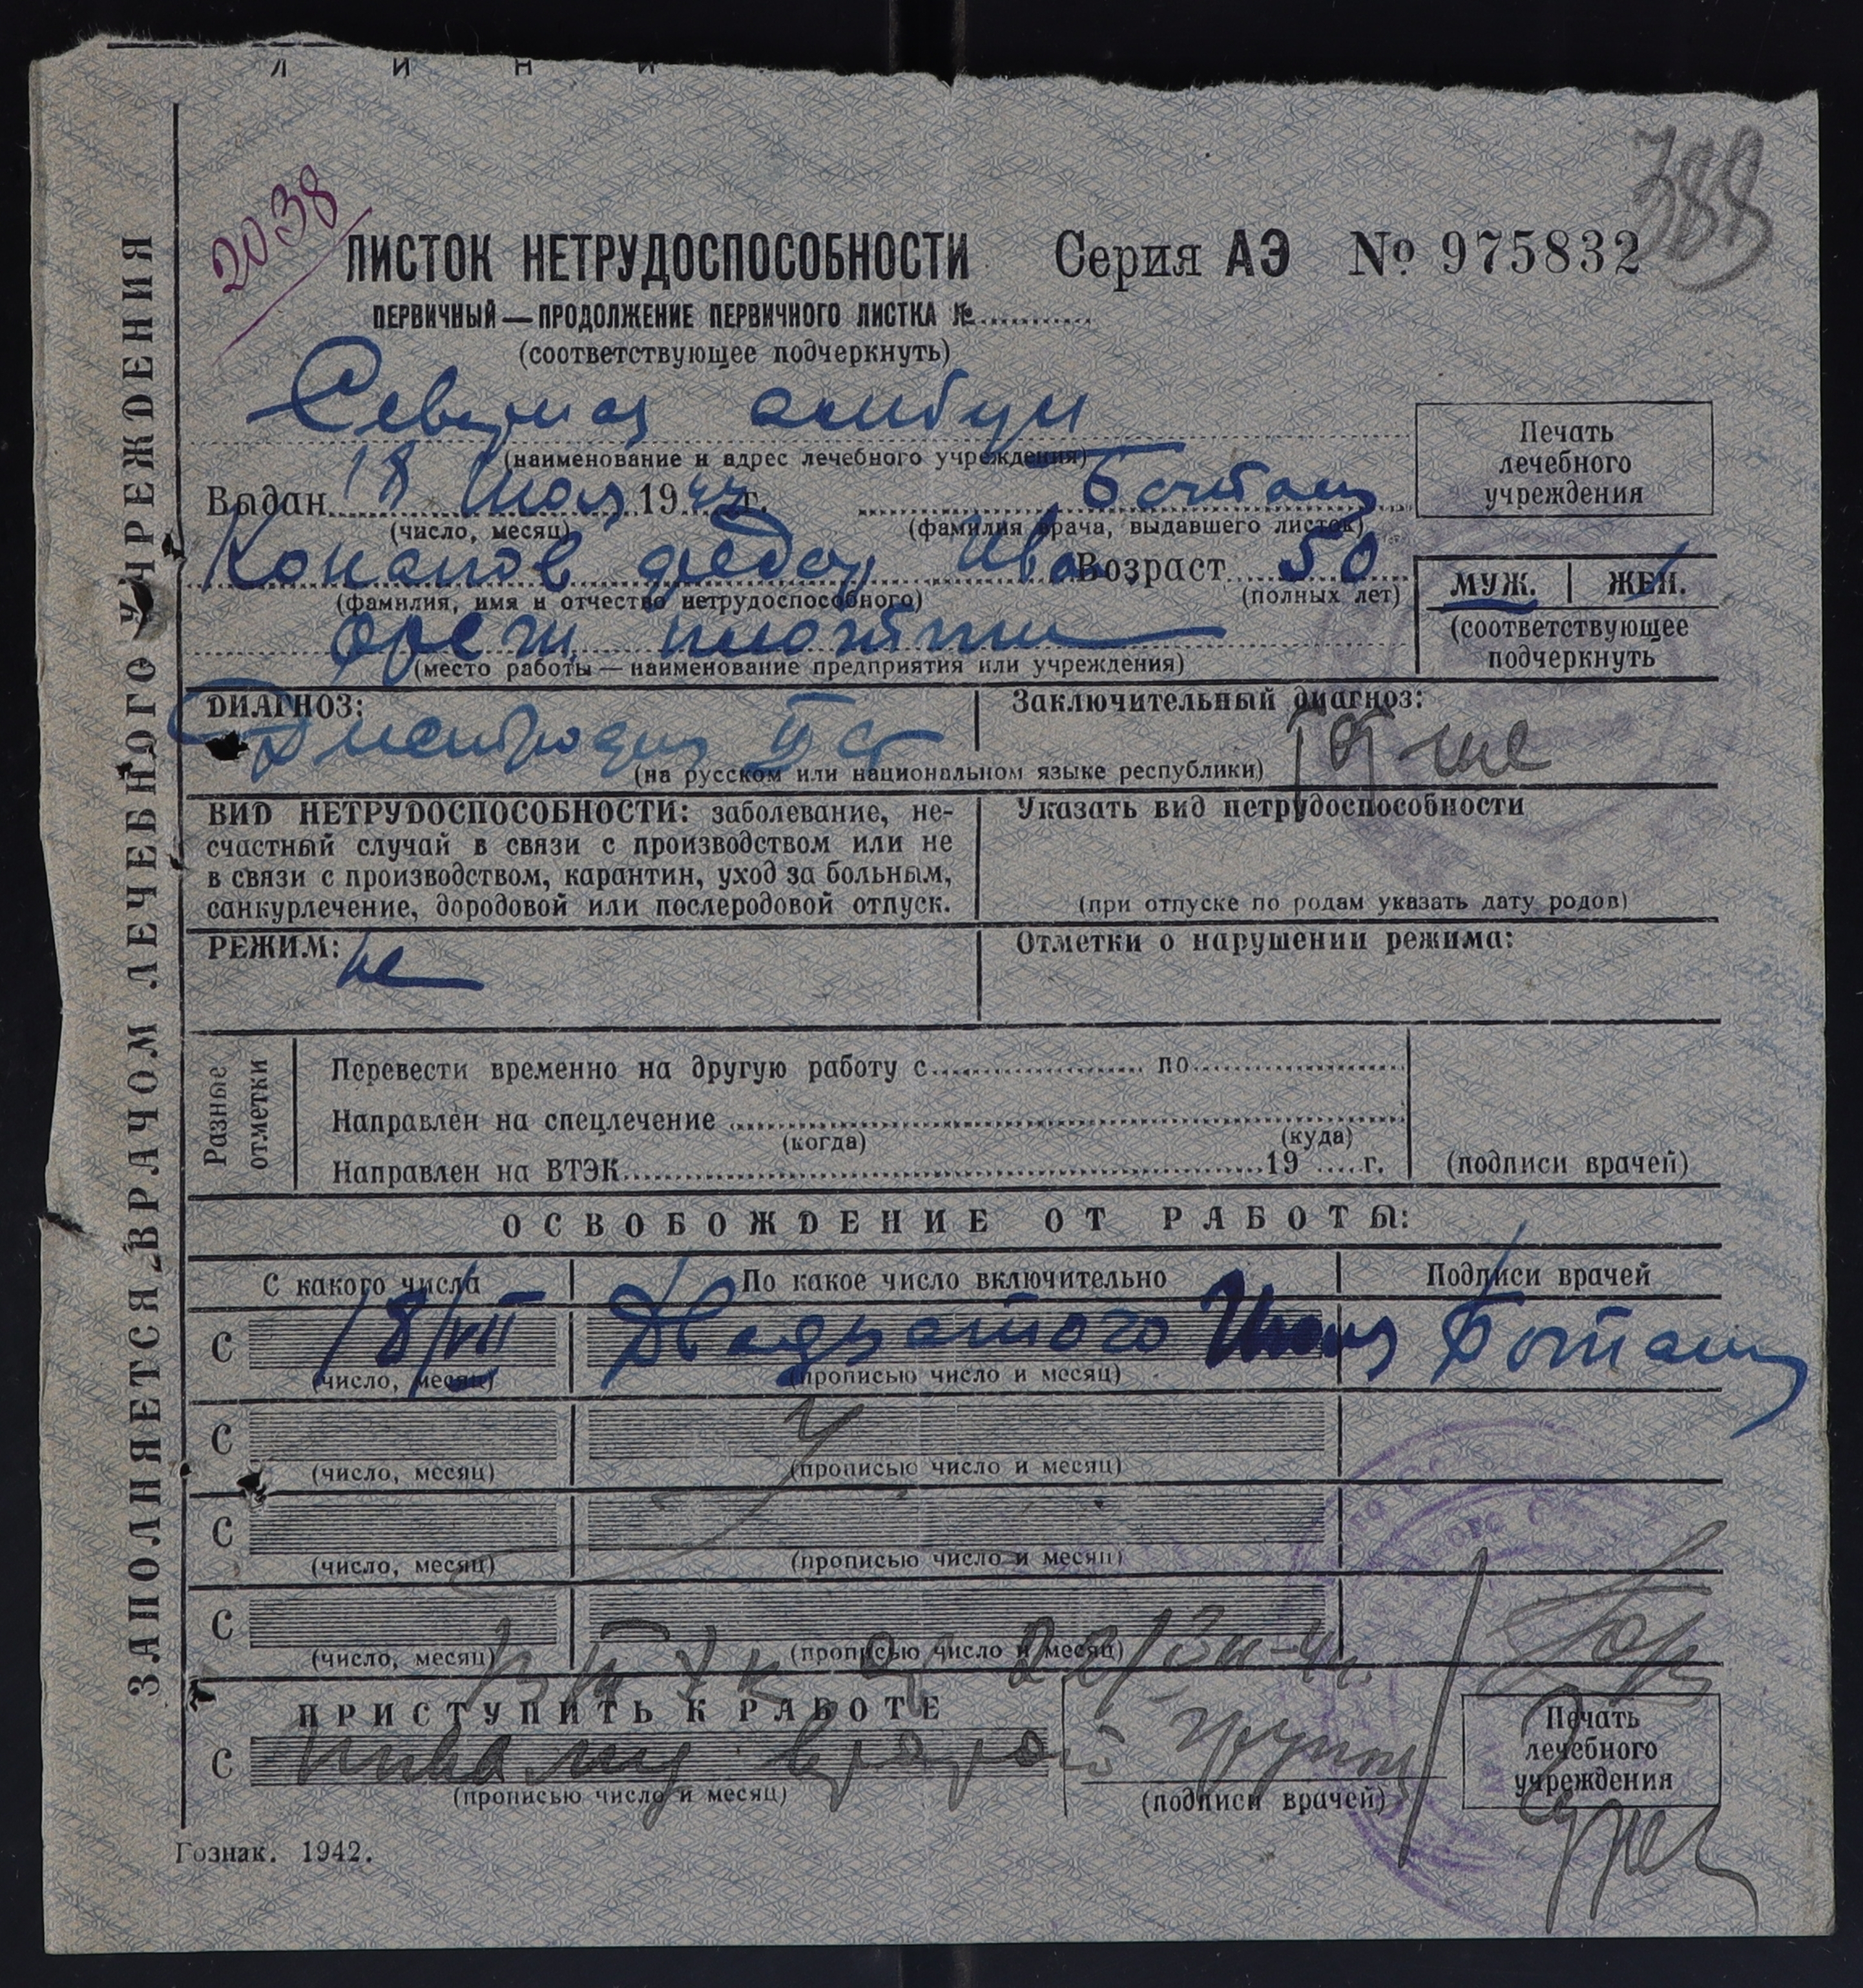 Л И Н И
388
2038
ЛИСТОК НЕТРУДОСПОСОБНОСТИ Серия АЭ № 975832
ПЕРВИЧНЫЙ — ПРОДОЛЖЕНИЕ ПЕРВИЧНОГО ЛИСТКА №
(соответствующее подчеркнуть)
амбул
(наименование и адрес лечебного учреждения)
Печать
лечебного
учреждения
Выдан 18 Июля 1944 г.
(число, месяц) (фамилия врача, выдавшего листок)
Конанов Федор Иван Возраст 50
(фамилия, имя и отчество нетрудоспособного) (полных лет)
МУЖ. | ЖЕН.
(соответствующее
подчеркнуть
(место работы — наименование предприятия или учреждения)
ДИАГНОЗ: Заключительный диагноз:
Дистрофия II ст
(на русском или национальном языке республики)
ВИД НЕТРУДОСПОСОБНОСТИ: заболевание, не-
счастный случай в связи с производством или не
в связи с производством, карантин, уход за больным,
санкурлечение, дородовой или послеродовой отпуск.
Указать вид нетрудоспособности
(при отпуске по родам указать дату родов)
РЕЖИМ: Отметки о нарушении режима:
Разные
отметки
Перевести временно на другую работу с по
Направлен на спецлечение
(когда) (куда)
Направлен на ВТЭК 19 г. (подписи врачей)
ОСВОБОЖДЕНИЕ ОТ РАБОТЫ:
С какого числа По какое число включительно Подписи врачей
С 18/VII Двадцатого Июля
(число, месяц) (прописью число и месяц)
С
(число, месяц) (прописью число и месяц)
С
(число, месяц) (прописью число и месяц)
С
(число, месяц) (прописью число и месяц)
ВТЭК
ПРИСТУПИТЬ К РАБОТЕ
С Инвалид второй групп
(прописью число и месяц) (подписи врачей)
Печать
лечебного
учреждения
Гознак. 1942.
ЗАПОЛНЯЕТСЯ ВРАЧОМ ЛЕЧЕБНОГО УЧРЕЖДЕНИЯ